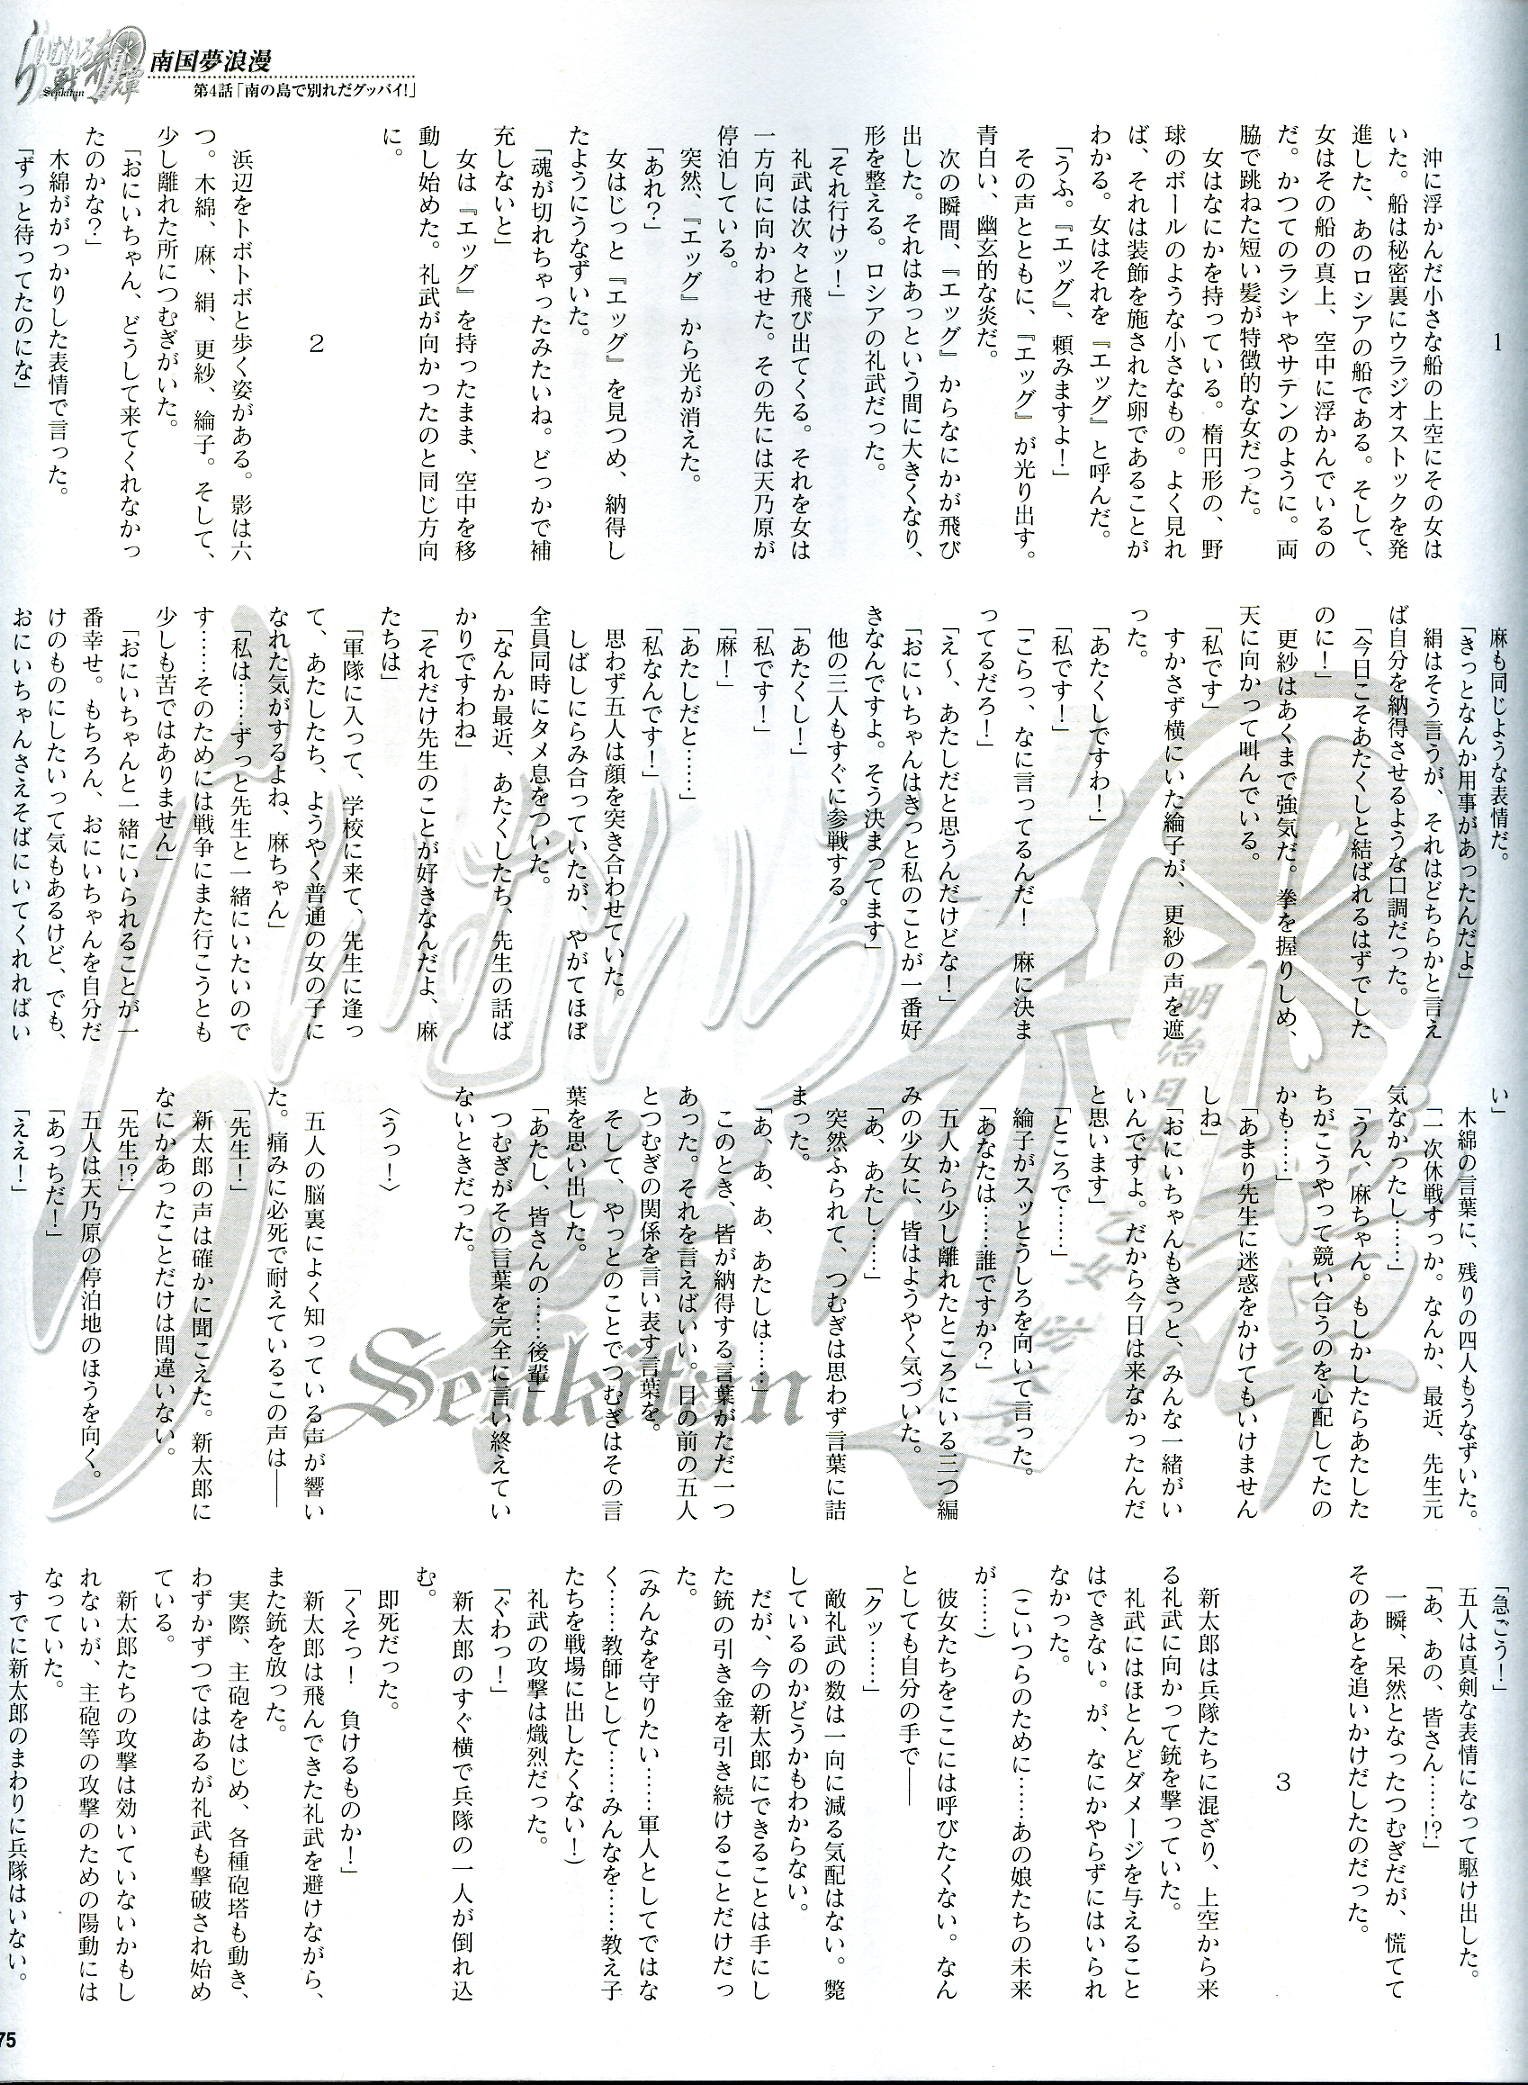 らいむいろ戦奇譚
Senkitan
南国夢浪漫
第4話「南の島で別れだグッバイ!」
1
　沖に浮かんだ小さな船の上空にその女は
いた。船は秘密裏にウラジオストックを発
進した、あのロシアの船である。そして、
女はその船の真上、空中に浮かんでいるの
だ。かつてのラシャやサテンのように。両
脇で跳ねた短い髪が特徴的な女だった。
　女はなにかを持っている。楕円形の、野
球のボールのような小さなもの。よく見れ
ば、それは装飾を施された卵であることが
わかる。女はそれを『エッグ』と呼んだ。
「うふ。『エッグ』、頼みますよ!」
　その声とともに、『エッグ』が光り出す。
青白い、幽玄的な炎だ。
　次の瞬間、『エッグ』からなにかが飛び
出した。それはあっという間に大きくなり、
形を整える。ロシアの礼武だった。
「それ行けッ!」
　礼武は次々と飛び出てくる。それを女は
一方向に向かわせた。その先には天乃原が
停泊している。
　突然、『エッグ』から光が消えた。
「あれ?」
　女はじっと『エッグ』を見つめ、納得し
たようにうなずいた。
「魂が切れちゃったみたいね。どっかで補
充しないと」
　女は『エッグ』を持ったまま、空中を移
動し始めた。礼武が向かったのと同じ方向
に。
2
　浜辺をトボトボと歩く姿がある。影は六
つ。木綿、麻、絹、更紗、綸子。そして、
少し離れた所につむぎがいた。
「おにいちゃん、どうして来てくれなかっ
たのかな?」
　木綿ががっかりした表情で言った。
「ずっと待ってたのにな」
　麻も同じような表情だ。
「きっとなんか用事があったんだよ」
　絹はそう言うが、それはどちらかと言え
ば自分を納得させるような口調だった。
「今日こそあたくしと結ばれるはずでした
のに!」
　更紗はあくまで強気だ。拳を握りしめ、
天に向かって叫んでいる。
「私です」
　すかさず横にいた綸子が、更紗の声を遮
った。
「あたくしですわ!」
「私です!」
「こらっ、なに言ってるんだ!　麻に決ま
ってるだろ!」
「え〜、あたしだと思うんだけどな!」
「おにいちゃんはきっと私のことが一番好
きなんですよ。そう決まってます」
　他の三人もすぐに参戦する。
「あたくし!」
「私です!」
「麻!」
「あたしだと……」
「私なんです!」
　思わず五人は顔を突き合わせていた。
　しばしにらみ合っていたが、やがてほぼ
全員同時にタメ息をついた。
「なんか最近、あたくしたち、先生の話ば
かりですわね」
「それだけ先生のことが好きなんだよ、麻
たちは」
「軍隊に入って、学校に来て、先生に逢っ
て、あたしたち、ようやく普通の女の子に
なれた気がするよね、麻ちゃん」
「私は……ずっと先生と一緒にいたいので
す……そのためには戦争にまた行こうとも
少しも苦ではありません」
「おにいちゃんと一緒にいられることが一
番幸せ。もちろん、おにいちゃんを自分だ
けのものにしたいって気もあるけど、でも、
おにいちゃんさえそばにいてくれればい
い」
　木綿の言葉に、残りの四人もうなずいた。
「一次休戦すっか。なんか、最近、先生元
気なかったし……」
「うん、麻ちゃん。もしかしたらあたした
ちがこうやって競い合うのを心配してたの
かも……」
「あまり先生に迷惑をかけてもいけません
しね」
「おにいちゃんもきっと、みんな一緒がい
いんですよ。だから今日は来なかったんだ
と思います」
「ところで……」
　綸子がスッとうしろを向いて言った。
「あなたは……誰ですか?」
　五人から少し離れたところにいる三つ編
みの少女に、皆はようやく気づいた。
「あ、あたし……」
　突然ふられて、つむぎは思わず言葉に詰
まった。
「あ、あ、あ、あたしは……」
　このとき、皆が納得する言葉がただ一つ
あった。それを言えばいい。目の前の五人
とつむぎの関係を言い表す言葉を。
　そして、やっとのことでつむぎはその言
葉を思い出した。
「あたし、皆さんの……後輩」
　つむぎがその言葉を完全に言い終えてい
ないときだった。
〈うっ!〉
　五人の脳裏によく知っている声が響い
た。痛みに必死で耐えているこの声は――
「先生!」
　新太郎の声は確かに聞こえた。新太郎に
なにかあったことだけは間違いない。
「先生!?」
　五人は天乃原の停泊地のほうを向く。
「あっちだ!」
「ええ!」
「急ごう!」
　五人は真剣な表情になって駆け出した。
「あ、あの、皆さん……!?」
　一瞬、呆然となったつむぎだが、慌てて
そのあとを追いかけだしたのだった。
3
　新太郎は兵隊たちに混ざり、上空から来
る礼武に向かって銃を撃っていた。
　礼武にはほとんどダメージを与えること
はできない。が、なにかやらずにはいられ
なかった。
(こいつらのために……あの娘たちの未来
が……)
　彼女たちをここには呼びたくない。なん
としても自分の手で――
「クッ……」
　敵礼武の数は一向に減る気配はない。斃
しているのかどうかもわからない。
　だが、今の新太郎にできることは手にし
た銃の引き金を引き続けることだけだっ
た。
(みんなを守りたい……軍人としてではな
く……教師として……みんなを……教え子
たちを戦場に出したくない!)
　礼武の攻撃は熾烈だった。
「ぐわっ!」
　新太郎のすぐ横で兵隊の一人が倒れ込
む。
　即死だった。
「くそっ!　負けるものか!」
　新太郎は飛んできた礼武を避けながら、
また銃を放った。
　実際、主砲をはじめ、各種砲塔も動き、
わずかずつではあるが礼武も撃破され始め
ている。
　新太郎たちの攻撃は効いていないかもし
れないが、主砲等の攻撃のための陽動には
なっていた。
　すでに新太郎のまわりに兵隊はいない。
らいむいろ戦奇譚
Senkitan
75